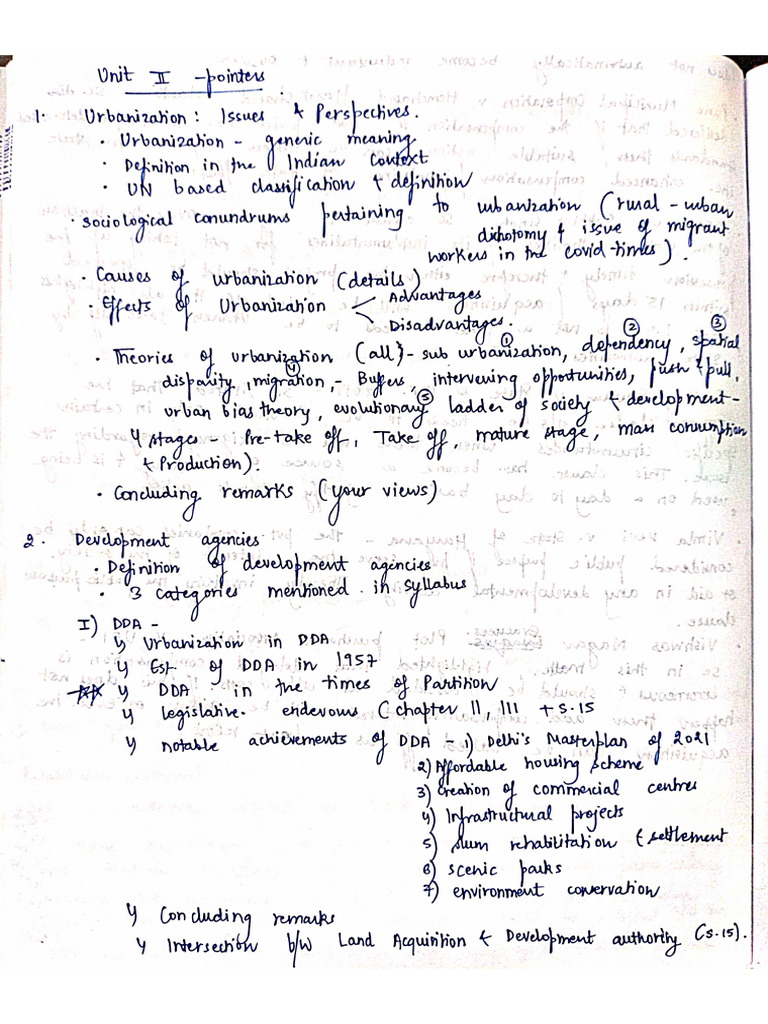 Unit II - pointers
1. Urbanization: Issues & Perspectives.
• Urbanization - generic meaning
• Definition in the Indian Context
• UN based classification & definition
• Sociological conundrums pertaining to urbanization (rural - urban
dichotomy & issue of migrant
workers in the covid-times).
• Causes of urbanization (details)
• Effects of Urbanization < Advantages
Disadvantages.
• Theories of urbanization (all) - sub urbanization, ① dependency, ② spatial ③
disparity, migration, ④ - Buffers, intervening opportunities, push & pull,
urban bias theory, evolutionary ⑤ ladder of society & development -
4 stages - Pre-take off, Take off, mature stage, mass consumption
& Production).
• Concluding remarks (your views)
2. Development agencies
• Definition of development agencies
• 3 categories mentioned in syllabus
I) DDA -
↳ Urbanization in DDA
↳ Est of DDA in 1957
** ↳ DDA in the times of Partition
↳ legislative endevous (chapter II, III + S.15
↳ notable achievements of DDA - 1) Delhi's Masterplan of 2021
2) Affordable housing scheme
3) Creation of commercial centres
4) Infrastructural projects
5) slum rehabilitation & settlement
6) scenic parks
7) environment conservation
↳ Concluding remarks
↳ Intersection b/w Land Acquisition & Development authority (S.15).